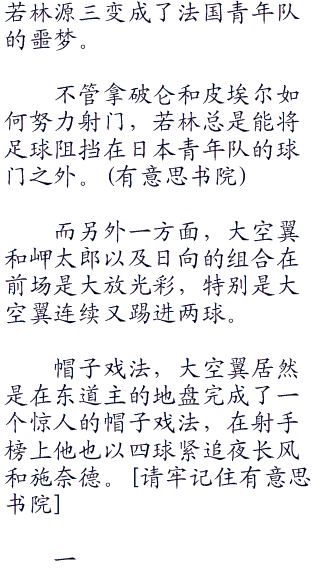 若林源三变成了法国青年队
的噩梦。
不管拿破仑和皮埃尔如
何努力射门，若林总是能将
足球阻挡在日本青年队的球
门之外。(有意思书院)
而另外一方面，大空翼
和岬太郎以及日向的组合在
前场是大放光彩，特别是大
空翼连续又踢进两球。
帽子戏法，大空翼居然
是在东道主的地盘完成了一
个惊人的帽子戏法，在射手
榜上他也以四球紧追夜长风
和施奈德。[请牢记住有意思
书院]
一